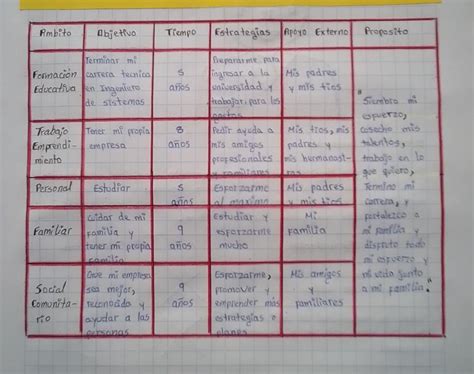 Ámbito Objetivo Tiempo Estrategias Apoyo Externo Proposito
Formación
Educativa
Terminar mi
carrera tecnica
en Ingeniero
de sistemas
5
años
Prepararme para
ingresar a la
universidad y
trabajar para los
gastos
Mis padres
y mis tios
Trabajo
Emprendi-
miento
Tener mi propia
empresa
8
años
Pedir ayuda a
mis amigos
profesionales
y familiares
Mis tios, mis
padres y
mis hermanos
Personal
Estudiar
5
años
Esforzarme
al maximo
Mis padres
y mis tios
Familiar
Cuidar de mi
familia y
tener mi propia
familia
9
años
Estudiar y
esforzarme
mucho
Mi
familia
Social
Comunita-
rio
Que mi empresa
sea mejor,
reconocida y
ayudar a las
personas
9
años
Esforzarme,
promover y
emprender más
estrategias o
planes
Mis amigos
y
familiares
"Siembro mi
esfuerzo,
cosecho mis
talentos,
trabajo en lo
que quiero,
Termino mi
carrera, y
fortalezco a
mi familia y
disfruto todo
mi esfuerzo y
mi vida junto
a mi familia."